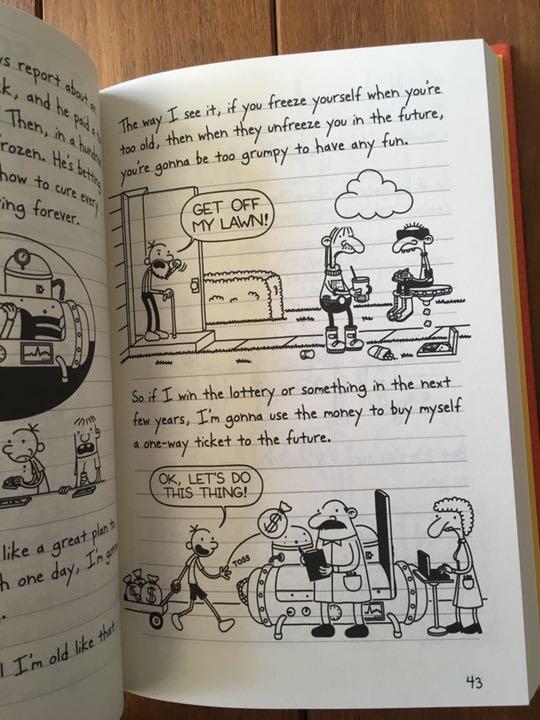 s report about
k, and he paid a
Then, in a
rozen. He's betting
how to cure every
ing forever.
like a great plan to
one day, I'm
I'm old like that
The way I see it, if you freeze yourself when you're
too old, then when they unfreeze you in the future,
you're gonna be too grumpy to have any fun.
GET OFF
MY LAWN!
So if I win the lottery or something in the next
few years, I'm gonna use the money to buy myself
a one-way ticket to the future.
OK, LET'S DO
THIS THING!
TOSS
43